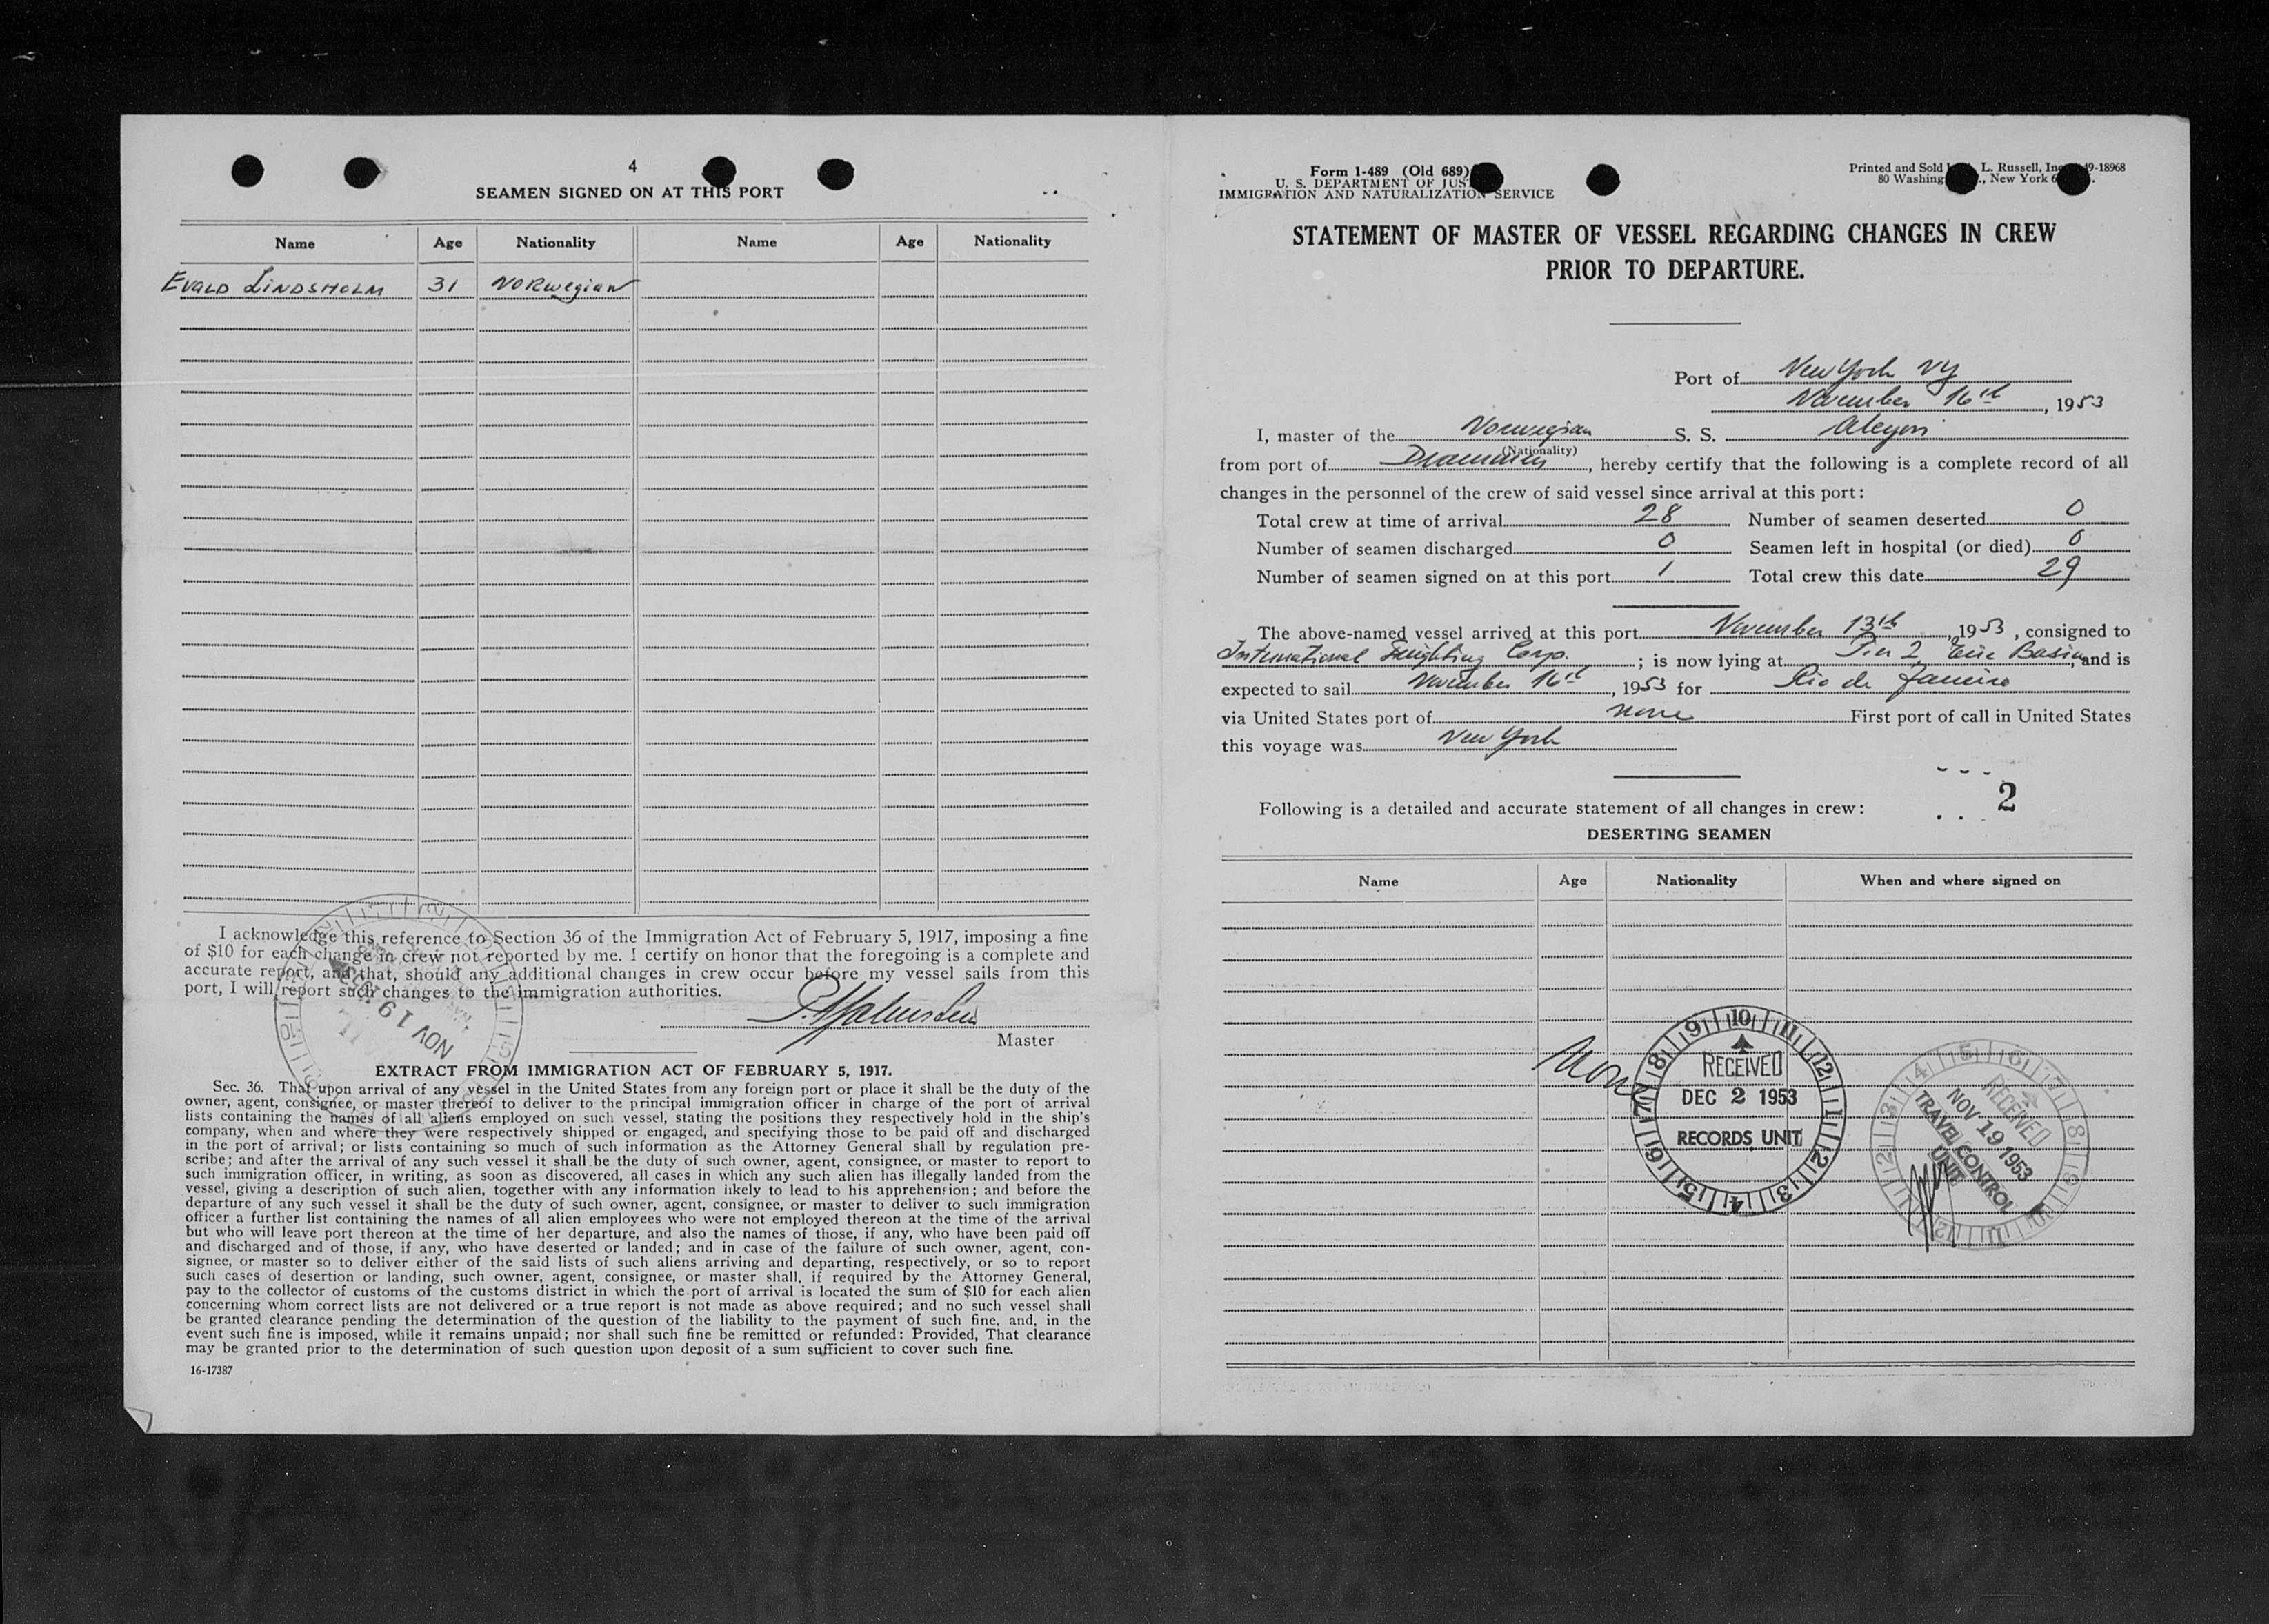 4
SEAMEN SIGNED ON AT THIS PORT
Name Age Nationality Name Age Nationality
EVALD LINDSHOLM 31 NORwegian
I acknowledge this reference to Section 36 of the Immigration Act of February 5, 1917, imposing a fine
of $10 for each change in crew not reported by me. I certify on honor that the foregoing is a complete and
accurate report, and that, should any additional changes in crew occur before my vessel sails from this
port, I will report such changes to the immigration authorities.
NOV 19
Master
EXTRACT FROM IMMIGRATION ACT OF FEBRUARY 5, 1917.
Sec. 36. That upon arrival of any vessel in the United States from any foreign port or place it shall be the duty of the
owner, agent, consignee, or master thereof to deliver to the principal immigration officer in charge of the port of arrival
lists containing the names of all aliens employed on such vessel, stating the positions they respectively hold in the ship's
company, when and where they were respectively shipped or engaged, and specifying those to be paid off and discharged
in the port of arrival; or lists containing so much of such information as the Attorney General shall by regulation pre-
scribe; and after the arrival of any such vessel it shall be the duty of such owner, agent, consignee, or master to report to
such immigration officer, in writing, as soon as discovered, all cases in which any such alien has illegally landed from the
vessel, giving a description of such alien, together with any information likely to lead to his apprehension; and before the
departure of any such vessel it shall be the duty of such owner, agent, consignee, or master to deliver to such immigration
officer a further list containing the names of all alien employees who were not employed thereon at the time of the arrival
but who will leave port thereon at the time of her departure, and also the names of those, if any, who have been paid off
and discharged and of those, if any, who have deserted or landed; and in case of the failure of such owner, agent, con-
signee, or master so to deliver either of the said lists of such aliens arriving and departing, respectively, or so to report
such cases of desertion or landing, such owner, agent, consignee, or master shall, if required by the Attorney General,
pay to the collector of customs of the customs district in which the port of arrival is located the sum of $10 for each alien
concerning whom correct lists are not delivered or a true report is not made as above required; and no such vessel shall
be granted clearance pending the determination of the question of the liability to the payment of such fine, and, in the
event such fine is imposed, while it remains unpaid; nor shall such fine be remitted or refunded: Provided, That clearance
may be granted prior to the determination of such question upon deposit of a sum sufficient to cover such fine.
16-17387
Form 1-489 (Old 689)
U. S. DEPARTMENT OF JUS
IMMIGRATION AND NATURALIZATION SERVICE
Printed and Sold L. Russell, Inc 49-18968
80 Washing , New York 6
STATEMENT OF MASTER OF VESSEL REGARDING CHANGES IN CREW
PRIOR TO DEPARTURE.
Port of New York NY
November 16th, 1953
I, master of the Norwegian S. S. Alcyon
(Nationality)
from port of Drammen, hereby certify that the following is a complete record of all
changes in the personnel of the crew of said vessel since arrival at this port:
Total crew at time of arrival 28 Number of seamen deserted 0
Number of seamen discharged 0 Seamen left in hospital (or died) 0
Number of seamen signed on at this port 1 Total crew this date 29
The above-named vessel arrived at this port November 13th, 1953, consigned to
International Freighting Corp.; is now lying at Pier 2, Erie Basin, and is
expected to sail November 16th, 1953 for Rio de Janeiro
via United States port of none First port of call in United States
this voyage was New York
2
Following is a detailed and accurate statement of all changes in crew:
DESERTING SEAMEN
Name Age Nationality When and where signed on
None
RECEIVED
DEC 2 1953
RECORDS UNIT
RECEIVED
NOV 19 1953
TRAVEL CONTROL
UNIT